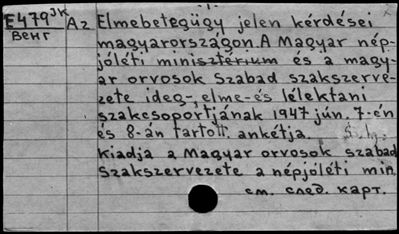 ./.
E479ЭК
Венг
Az Elmebetegügy jelen kérdései
magyarországon. A Magyar nép-
jóléti minisztérium és a magy-
ar orvosok szabad szakszerve-
zete ideg-, elme-és lélektani
szakcsoportjának 1947 jún. 7-én
és 8-án tartott ankétja.
kiadja a Magyar orvosok szabad
szakszervezete a népjóléti min
см. след. карт.